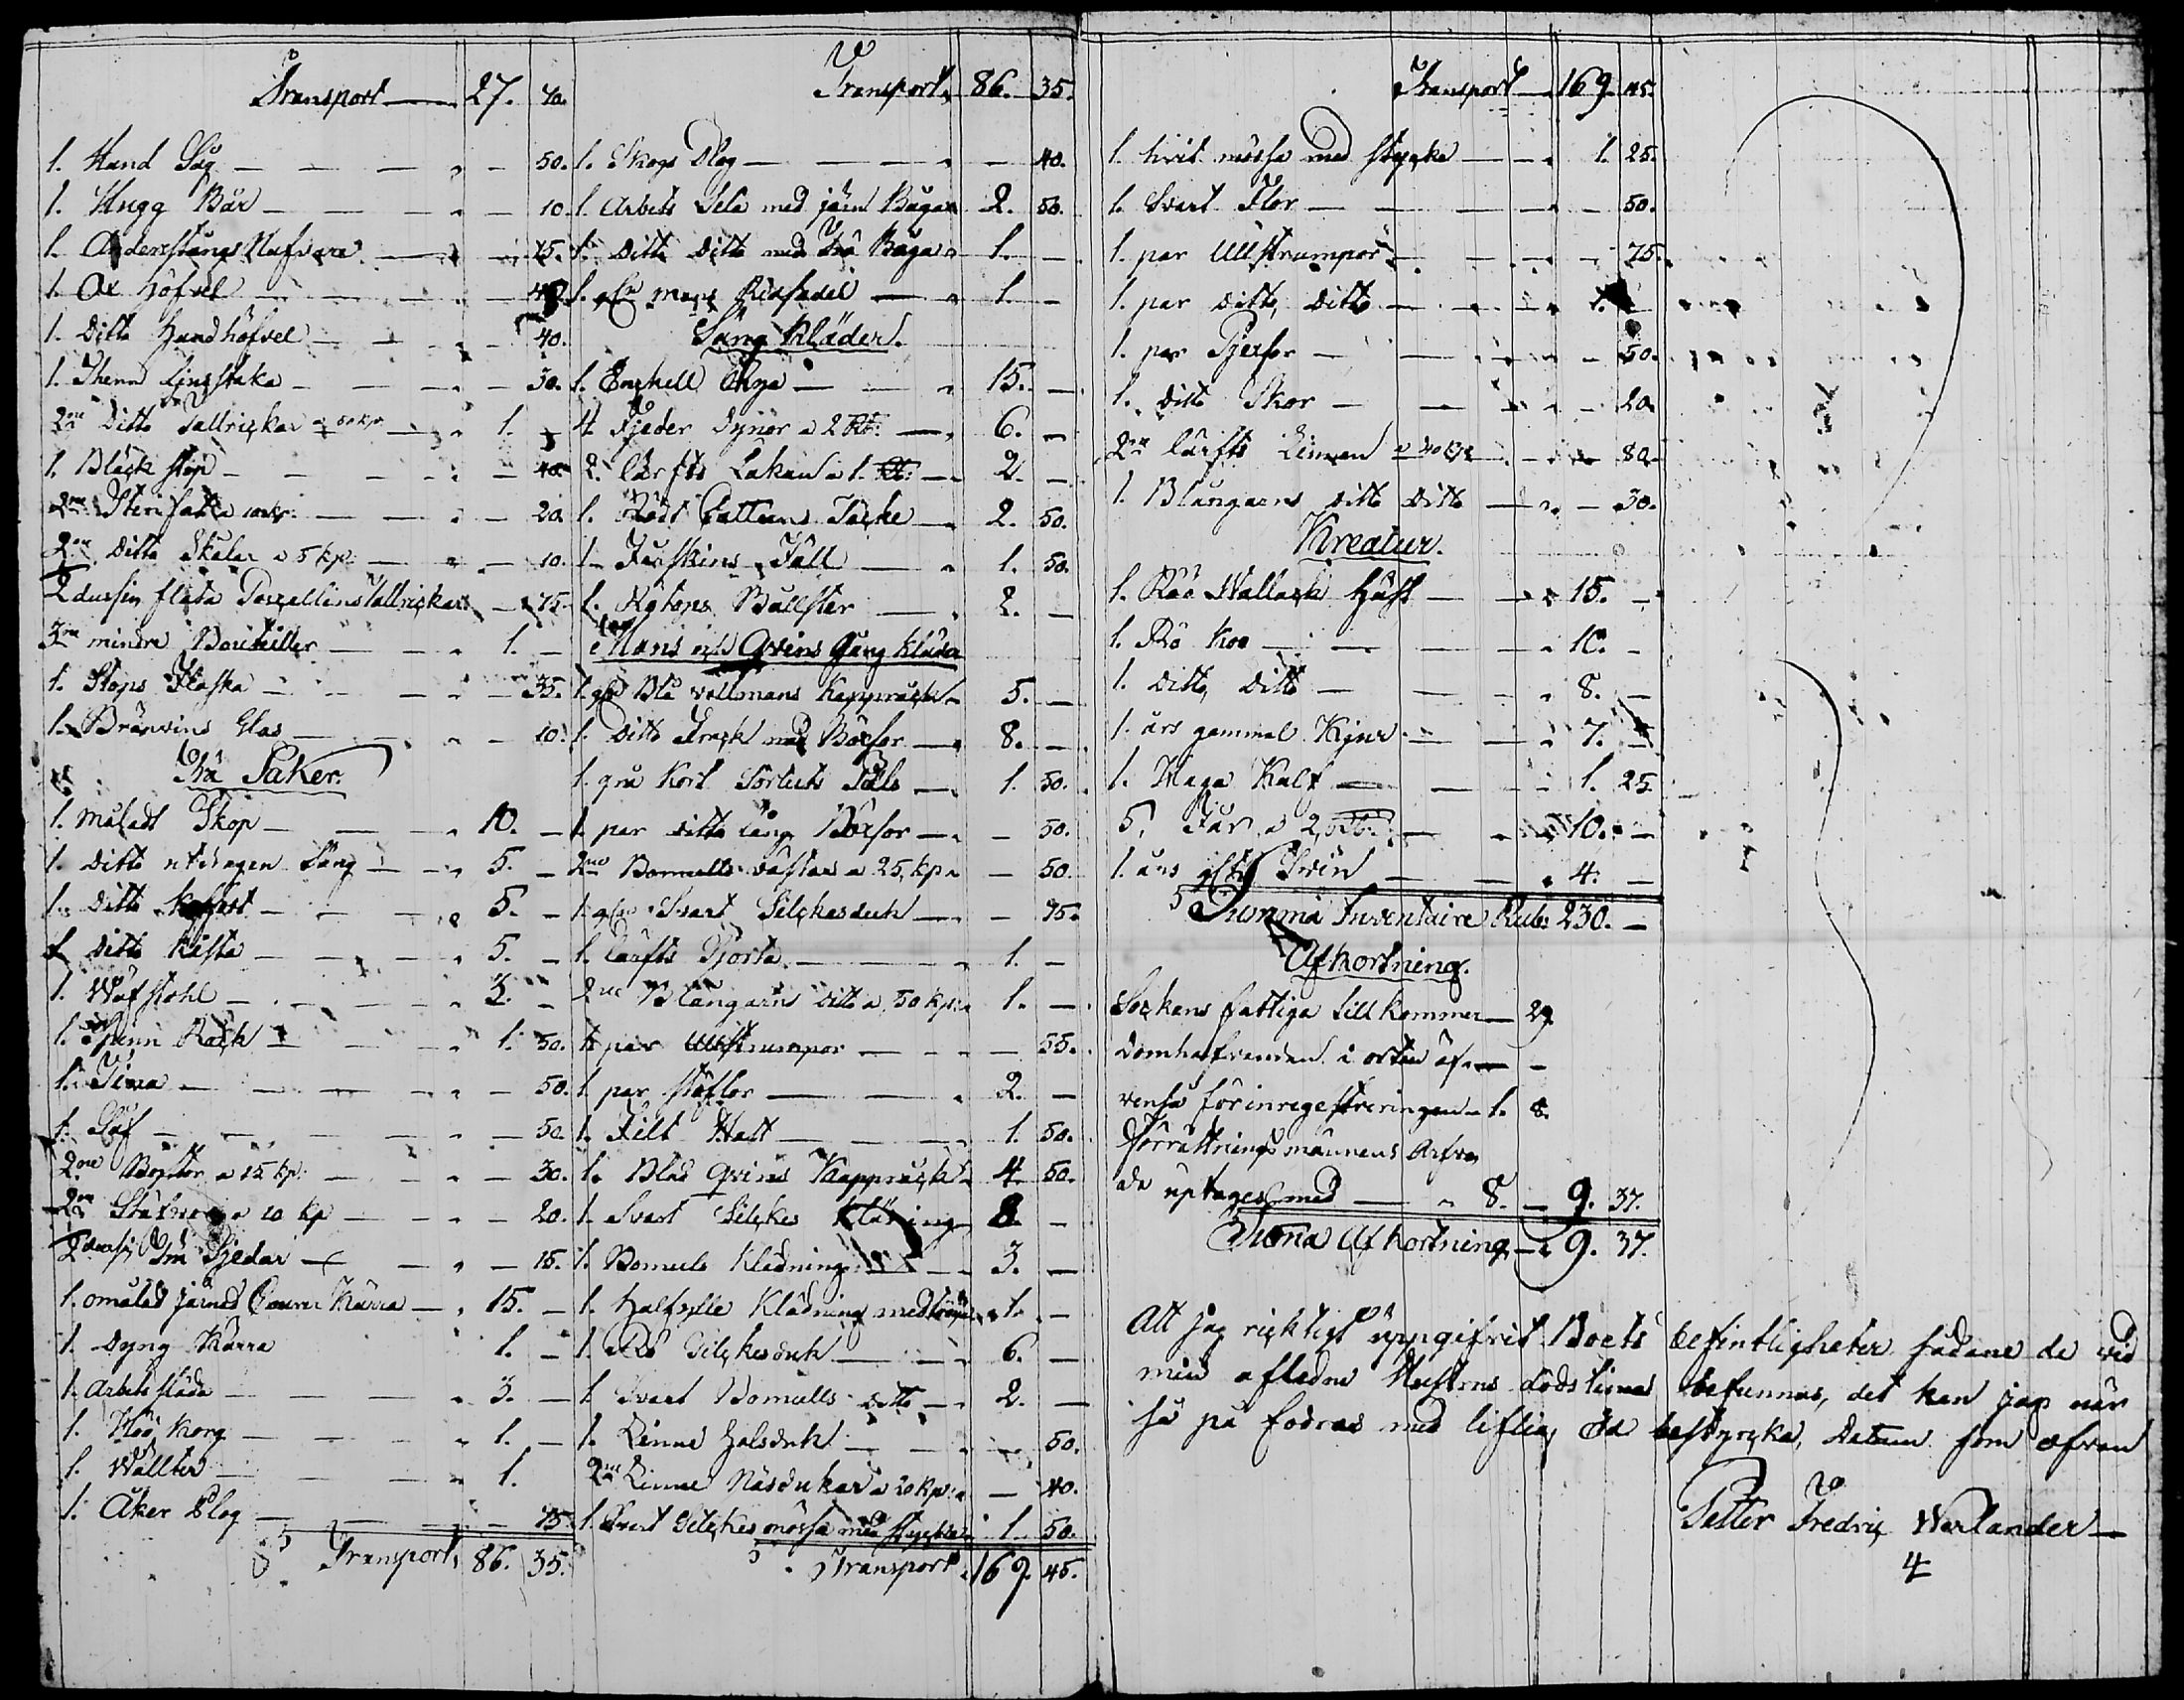 Transport — 27. 70.
1. Hand Såg — 50.
1. Hugg Bår — 10.
1. Anderstångs Nafvare — 15.
1. Ax höfvel —
1. Ditto Handhöfvel — 40.
1. Thenn Ljusstaka — 30.
2ne Ditto Tallrickar a 50 kp — 1. —
1. Bläck stop — 40.
2ne Stenfat a 10 kp. — 20.
2ne Ditto Skålar a 5 kp — 10.
2 dussin flata Porzellins Tallrickar — 75.
3ne mindre Bouteiller — 1. —
1. Stops Flaska — 35.
1. Bränvins Glas — 10.
Trä Saker.
1. måladt Skop — 10. —
1. Ditto utdragen Säng — 5. —
1. Ditto — 5. —
1. Ditto Kista — 5. —
1. Wäfstohl — 3. —
1. Spinn Rock — 1. 50.
1. Tina — 50.
1. Såf — 50.
2ne Byttor a 15 kp. — 30.
2ne Stäfvor a 10 kp — 20.
2 dussin Trä Skedar — 15.
1. omålad järnad Kärra — 15. —
1. Dyng Kärra 1. —
1. Arbets släda — 3. —
1. Höö korg — 1. —
1. Wällter — 1.
1. Åker Plog — 75.
Transport, 86. 35.
Transport, 86. 35.
1. Skogs Plog — 40.
1. Arbets Sela med järn Båga 2. 50.
1. Ditto Ditto med Trä Båga 1. —
1. gl. mans Ridsadel — 1. —
Säng Kläder.
1. Enskell Rya — 15. —
4. Fjeder Dynor a 2 Rb: — 6. —
2. lärfts Lakan a 1. Rb: — 2. —
1. Rödt Cattuns Täcke — 2. 50.
1. Fårskins Fäll — 1. 50.
1. Bållster — 2. —
Mans och Qvins Gång kläder
1. gl. Blå vallmans Kapprock — 5. —
1. Ditto Frack med Böxsor — 8. —
1. grå Kort Sörtuts Påls — 1. 50.
1. par ditto lång Böxsor — 50.
2ne Bomulls västar a 25, kp — 50.
1. gl. Svart Silckesduk — 75.
1. lärfts Skjorta — 1. —
2ne Blångarns ditto a 50 kp: 1. —
1. par Ullstrumpor — 55.
1. par stöflor — 2. —
1. Filt Hatt — 1. 50.
1. Blå Qvins Kapprock 4. 50.
1. Svart Silckes Klädning 8. —
1. Bomuls Klädning — 3. —
1. Halfylle Klädning med tröja 1. —
1. Rö Silckesduk — 6. —
1. Svart Bomulls ditto — 2. —
1. Linne halsduk — 50.
2ne Linne Näsdukar a 20 kp: — 40.
1. Svart Silckes mössa med stycke 1. 50.
Transport 169. 45.
Transport — 169. 45.
1. hvit mössa med stycke — 1. 25.
1. Svart Flor — 50.
1. par Ullstrumpor — 75.
1. par ditto, Ditto —
1. par Pjexsor — 50.
1. Ditto Skor — 20.
2ne lärfts Linnen a 40 kp — 80.
1. Blångarns ditto Ditto — 30.
Kreatur.
1. Röö Wallack Häst — 15. —
1. Rö Koo — 10. —
1. Ditto, Ditto — 8. —
1. års gammal Kjur — 7. —
1. Kalf — 1. 25.
5, Får, a 2, Rb. — 10. —
1. års gl. Swin — 4. —
Summa Inventaire Rub: 230. —
Afkortning.
Sockens fattiga tillkommer — 29.
Domhafvanden i orten äf —
venså för inregistreringen — 1. 8.
Förrättningsmännens Arfvo
de uptages med — 8. — 9. 37.
Suma Afkortning — 9. 37.
Att jag ricktigt uppgifvit Boets befintligheter sådane de wid
min aflednes Hustrus dödstima befunnos, det kan jag när
så på fodras med liflig Ed bestyrcka, Datum som ofvan
Petter Fredric Werlander —
4